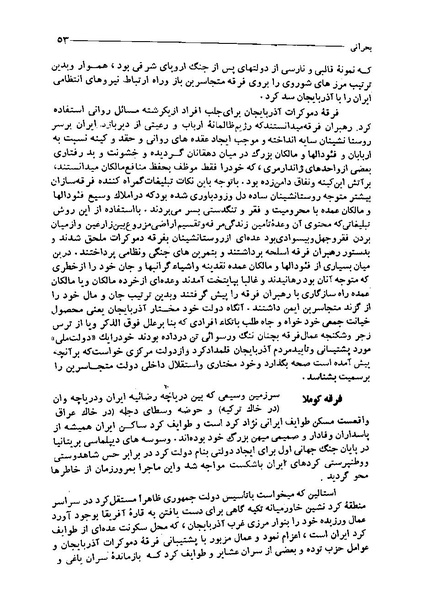 بحرانی ۵۳
که نمونهٔ قالبی و نارسی از دولتهای پس از جنگ اروپای شرقی بود، هموار وبدین
ترتیب مرز های شوروی را بروی فرقه متجاسرین باز وراه ارتباط نیروهای انتظامی
ایران را با آذربایجان سد کرد.
فرقهٔ دموکرات آذربایجان برای جلب افراد ازیکرشته مسائل روانی استفاده
کرد. رهبران فرقه میدانستند که رژیم ظالمانهٔ ارباب و رعیتی از دیرباز در ایران برسر
روستا نشینان سایه انداخته و موجب ایجاد عقده های روانی و حقد و کینه نسبت به
اربابان و فئودالها و مالکان بزرگ در میان دهقانان گردیده و خشونت و بد رفتاری
بعضی از واحدهای ژاندارمری، که خود را فقط موظف بحفظ منافع مالکان میدانستند،
بر آتش این کینه ونفاق دامن زده بود. باتوجه باین نکات تبلیغات گمراه کننده فرقه سازان
بیشتر متوجه روستانشینان ساده دل وزودباوری شده بود که در املاک وسیع فئودالها
و مالکان عمده با محرومیت و فقر و تنگدستی بسر می بردند. با استفاده از این روش
تبلیغاتی که محتوی آن وعدهٔ تامین زندگی مرفه وتقسیم اراضی مزروعی بین زارعین و از میان
بردن فقر و جهل و بیسوادی بود عده ای از روستانشینان بفرقه دموکرات ملحق شدند و
بدستور رهبران فرقه اسلحه برداشتند و بتمرین های جنگی ونظامی پرداختند. در این
میان بسیاری از فئودالها و مالکان عمده نقدینه واشیاء گرانبها و جان خود را از خطری
که متوجه آنان بود رهانیدند و غالبا بپایتخت آمدند وعده ای از خرده مالکان ویا مالکان
عمده راه سازگاری با رهبران فرقه را پیش گرفتند وبدین ترتیب جان و مال خود را
از گزند متجاسرین ایمن داشتند. آنگاه دولت خود مختار آذربایجان یعنی محصول
خیانت جمعی خود خواه و جاه طلب با تکاء افرادی که بنا بر علل فوق الذکر ویا از ترس
زجر وشکنجه عمال فرقه بچنان ننگ ورسوائی تن درداده بودند خود را یک «دولت ملی»
مورد پشتیبانی و تایید مردم آذربایجان قلمداد کرد و از دولت مرکزی خواست که بر آنچه
پیش آمده است صحه بگذارد وخود مختاری واستقلال داخلی دولت متجاسرین را
برسمیت بشناسد.
فرقه کوملا سرزمین وسیعی که بین دریاچه رضائیه ایران ودریاچه وان
(در خاک ترکیه) و حوضه وسطای دجله (در خاک عراق
واقعست مسکن طوایف ایرانی نژاد کرد است و طوایف کرد ساکن ایران همیشه از
پاسداران وفادار و صمیمی میهن بزرگ خود بوده اند. وسوسه های دیپلماسی بریتانیا
در پایان جنگ جهانی اول برای ایجاد دولتی بنام دولت کرد در برابر حس شاهدوستی
ووطنپرستی کردهای ایران باشکست مواجه شد واین ماجرا بمرور زمان از خاطرها
محو گردید.
استالین که میخواست با تاسیس دولت جمهوری ظاهرا مستقل کرد در سراسر
منطقهٔ کرد نشین خاورمیانه تکیه گاهی برای دست یافتن به قارهٔ آفریقا بوجود آورد
عمال ورزیده خود را بنوار مرزی غرب آذربایجان، که محل سکونت عده ای از طوایف
کرد ایران است، اعزام نمود و عمال مزبور با پشتیبانی فرقهٔ دموکرات آذربایجان و
عوامل حزب توده و بعضی از سران عشایر و طوایف کرد که بازماندهٔ سران یاغی و